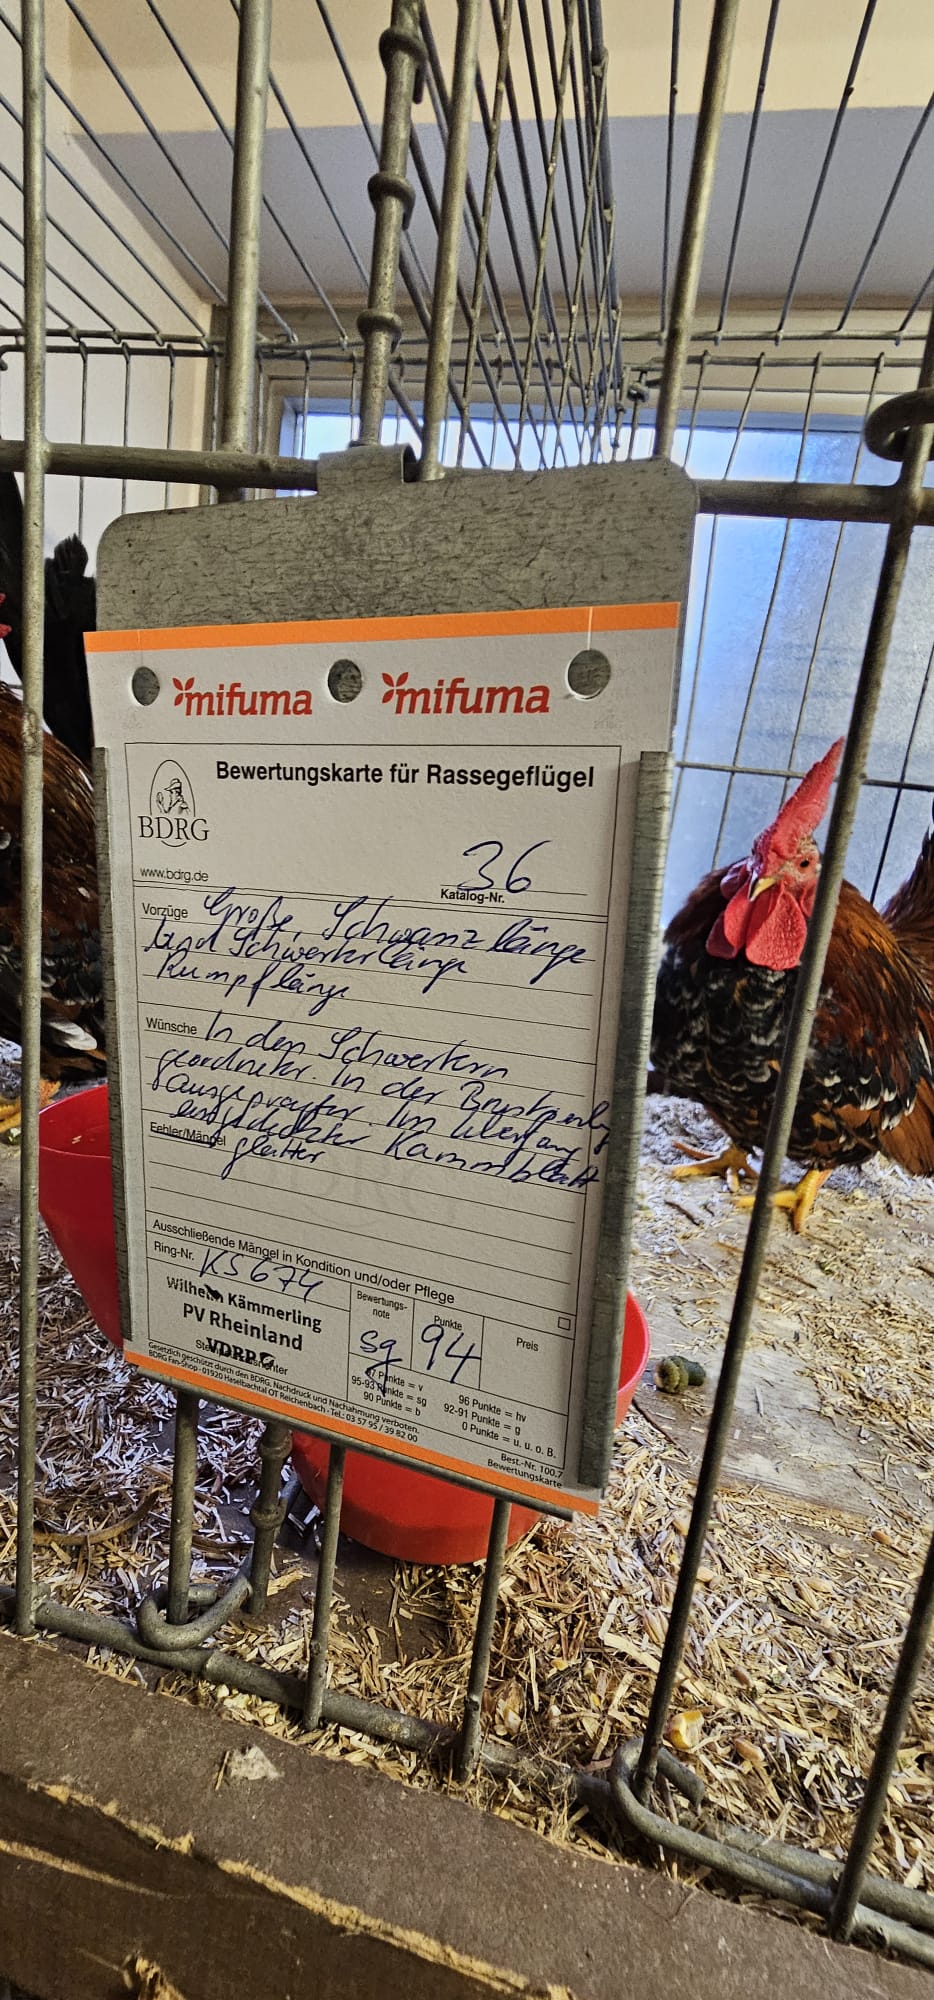 mifuma mifuma
Bewertungskarte für Rassegeflügel
BDRG
www.bdrg.de
36
Katalog-Nr.
Vorzüge Größe, Schwanzlänge
und Schwerterlänge
Rumpflänge
Wünsche In den Schwertern
geordneter. In der Brust
ausgeprägter. Im Übergang
Kammblatt
Fehler/Mängel glatter
Ausschließende Mängel in Kondition und/oder Pflege
Ring-Nr. KS674
Wilhelm Kämmerling
PV Rheinland
VDRP
Bewertungs-
note
sg
Punkte
94
Preis
97 Punkte = v
95-93 Punkte = sg
90 Punkte = b
96 Punkte = hv
92-91 Punkte = g
0 Punkte = u. u. o. B.
Gesetzlich geschützt durch den BDRG, Nachdruck und Nachahmung verboten.
BDRG Fan-Shop · 01920 Haselbachtal OT Reichenbach · Tel.: 03 57 95 / 39 82 00
Best.-Nr. 100.7
Bewertungskarte